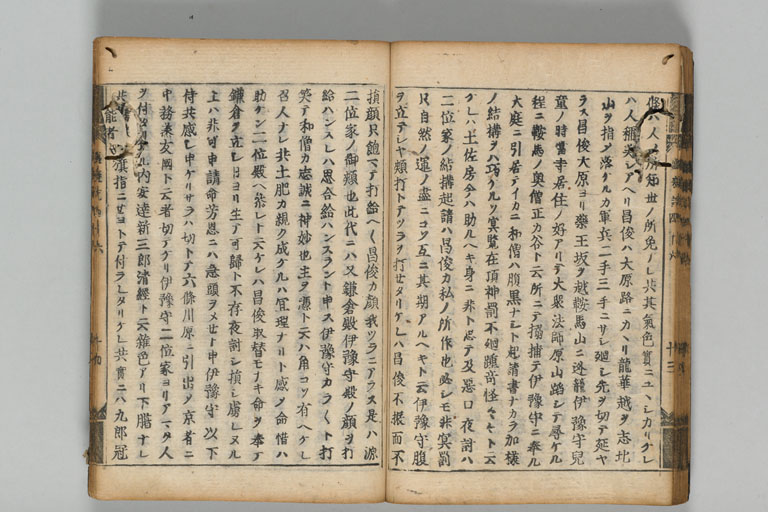 ハ人ノ所知世ノ所免ノレ共其氣色實ニユヽシカリケレ
ハ人稱美シアヘリ昌俊ハ大原路ニカヽリ龍華越ヲ志北
山ヲ指テ落ケルカ軍兵二手三手ニサシ廻シ先ヲ切テ延ヤ
ラス昌俊大原ヨリ藥王坂ヲ越鞍馬山ニ逃籠伊豫守兒
童ノ時當寺居住ノ好アリテ大衆法師原山踏シテ尋ケル
程ニ鞍馬ノ奥僧正カ谷ト云所ニテ搦捕テ伊豫守ニ奉ル
大庭ニ引居テイカニ和僧ハ腹黒ナシト起請書ナカラ加樣
ノ結構ヲハ巧ケルソ冥覽在頂神罰不廻踵奇怪々々ト云
ケレハ土佐房今ハ助ルヘキ身ニ非ト思テ及惡口夜討ハ
二位家ノ結構起請ハ昌俊カ私ノ所作也必シモ非冥罰
只自然ノ運ノ盡ニコソ互ニ其期アルヘキト云伊豫守腹
ヲ立テシヤ頬打トテツラヲ打セタリケレハ昌俊不振面不
損顔只蝕マテ打給ヘく昌俊カ顔我ツラニアラス是ハ源
二位家ノ御頬也此代ニハ又鎌倉殿伊豫守殿ノ顔ヲ打
給ハンスレハ思合給ハンスラント申ス伊豫守カラくト打
笑テ和僧カ志誠ニ神妙也主ヲ憑トハ角コソ有ヘケレ
召人ナレ共土肥カ親ク成ケルハ冝理ナリト感ヲ命惜ハ
助ケン二位殿ヘ參レト云ケレハ昌俊取替モナキ命ヲ奉テ
鎌倉ヲ立シ日ヨリ生テ可歸ト不存夜討シ損シ虜レヌル
上ハ非可申請命芳恩ニハ急頭ヲメセト申伊豫守以下
侍共感シ申ケリサラハ切トテ六條川原ニ引出ヲ京者ニ
中務丞友國ト云者切テケリ伊豫守二位家ヨリアマタ人
ヲ付ケル内安達新三郎清經ト云雜色アリ下臈ナレ
共能者旗指ニセヨトテ付ラレタリケレ共實ニハ九郎冠